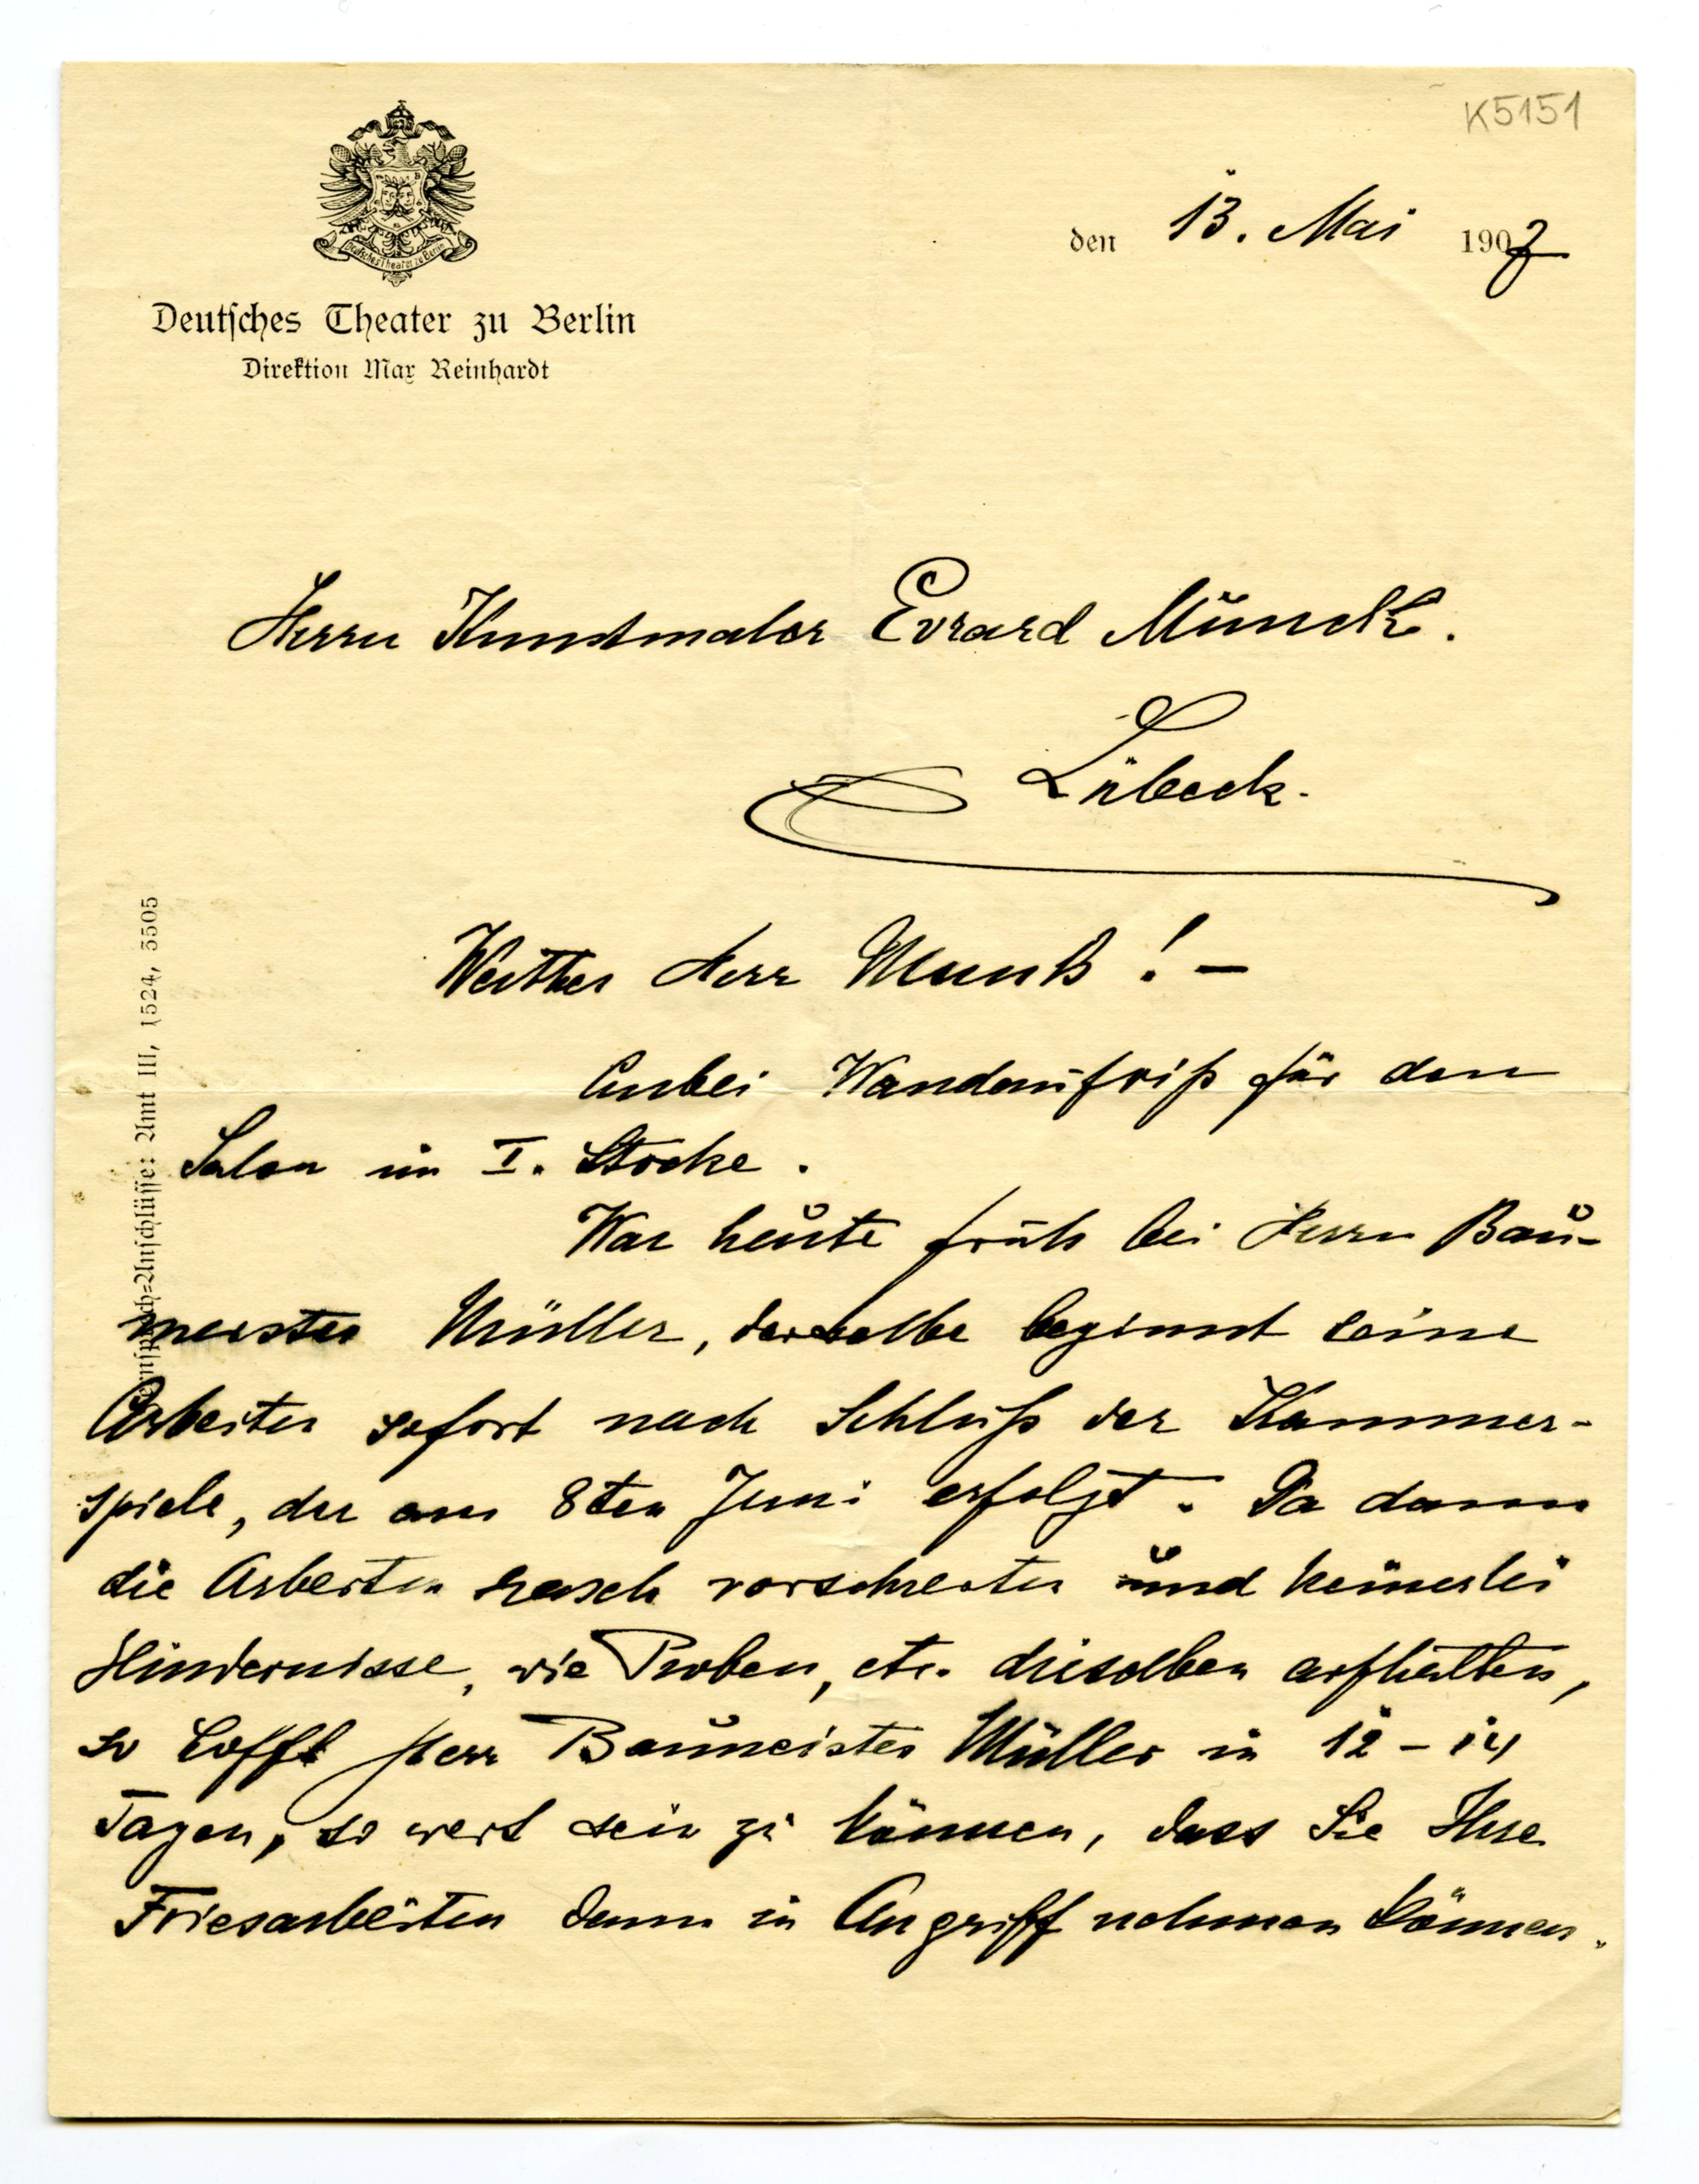 K5151
Deutsches Theater zu Berlin
Deutsches Theater zu Berlin
Direktion Max Reinhardt
den 13. Mai 1907
Herrn Kunstmaler Evrard Münck.
Lübeck.
Werther Herr Munk! –
Anbei Wandaufriß für den
Salon im I. Stocke.
War heute früh bei Herrn Bau-
meister Müller, derselbe beginnt seine
Arbeiten sofort nach Schluß der Kammer-
spiele, der am 8ten Juni erfolgt. Da dann
die Arbeiten rasch vorschreiten und keinerlei
Hindernisse, wie Proben, etc. dieselben aufhalten,
so hofft Herr Baumeister Müller in 12 – 14
Tagen, so weit sein zu können, dass Sie Ihre
Friesarbeiten dann in Angriff nehmen können.
Fernsprech-Anschlüsse: Amt III, 1524, 5505